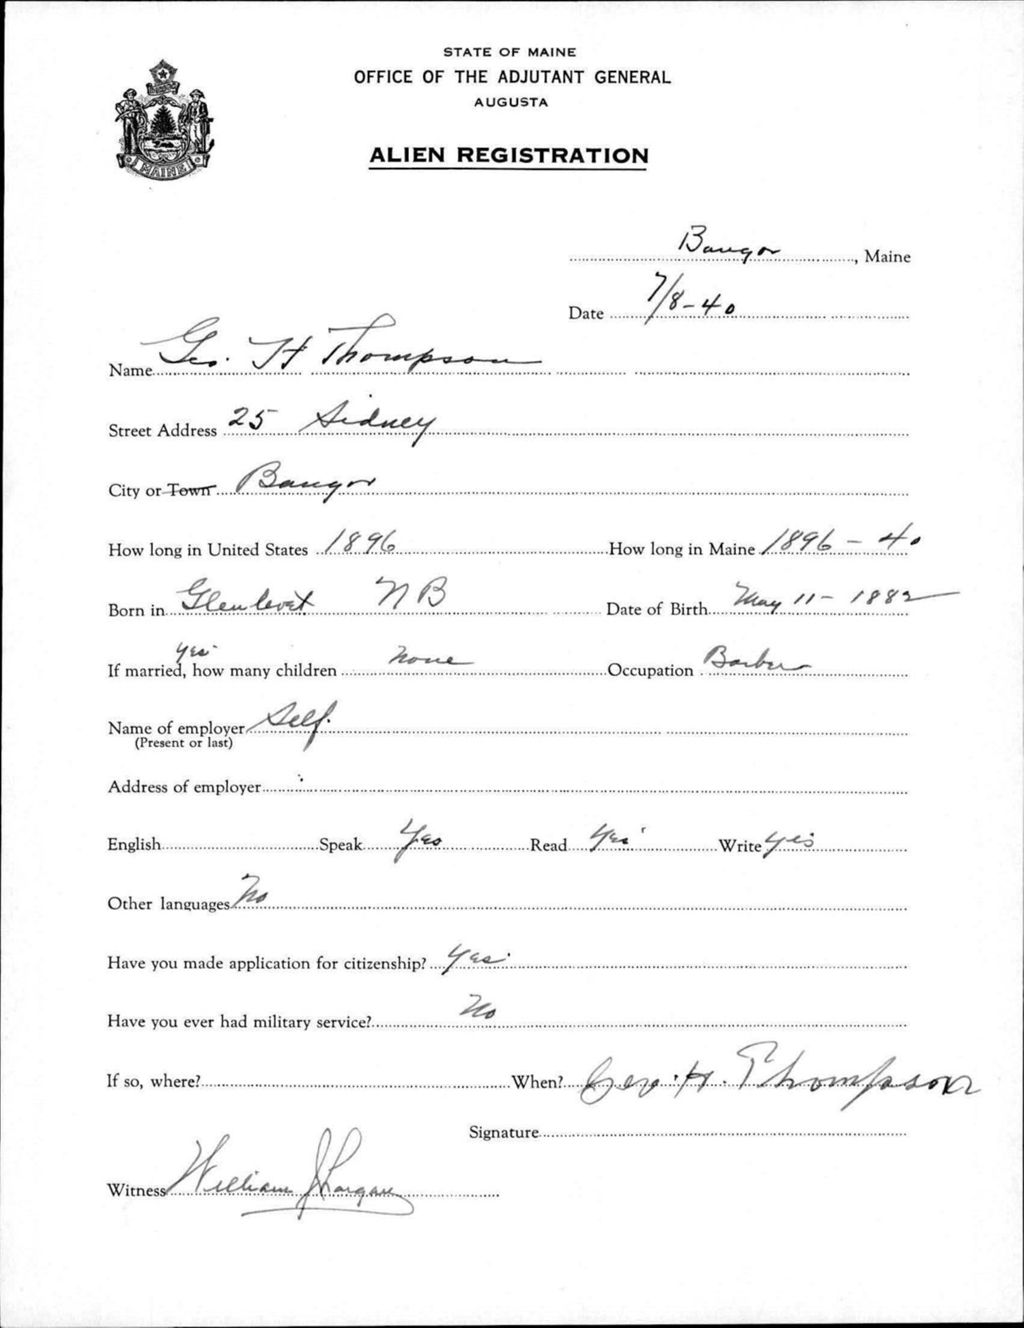 STATE OF MAINE
OFFICE OF THE ADJUTANT GENERAL
AUGUSTA
ALIEN REGISTRATION
MAINE
Bangor, Maine
Date 7/8-40
Name Geo. H Thompson
Street Address 25 Sidney
City or Town Bangor
How long in United States 1896 How long in Maine 1896 - 40
Born in Glenlevet NB Date of Birth May 11 - 1882
yes
If married, how many children none Occupation Barber
Name of employer Self.
(Present or last)
Address of employer
English Speak Yes Read Yes Write Yes
Other languages No
Have you made application for citizenship? Yes
Have you ever had military service? No
If so, where? When? Geo. H. Thompson
Signature
Witness William J